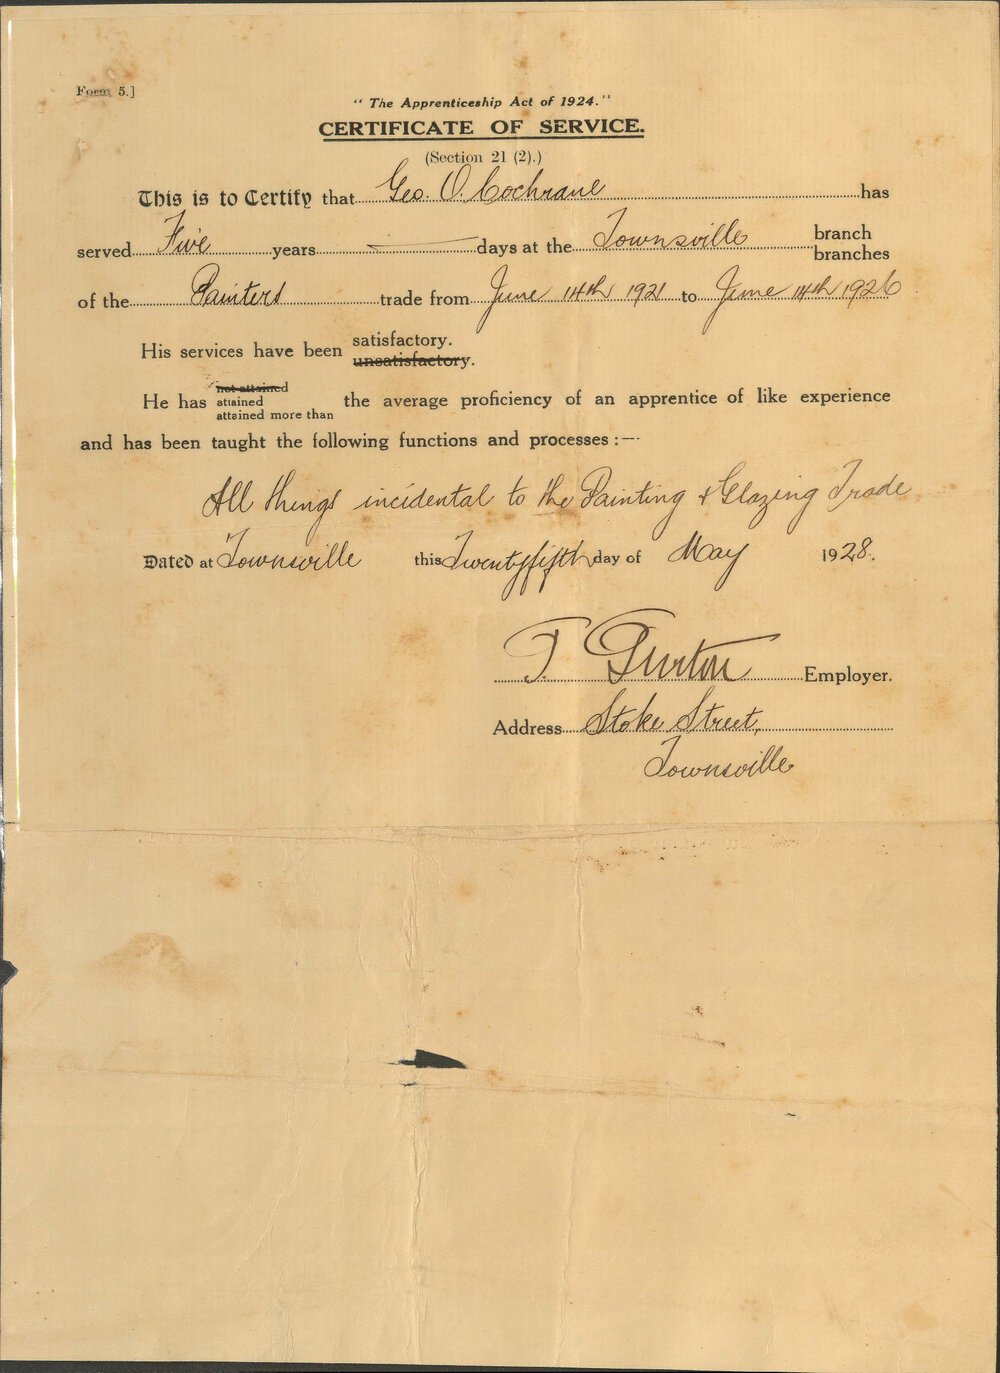 Form 5.]
"The Apprenticeship Act of 1924."
CERTIFICATE OF SERVICE.
(Section 21 (2).)
This is to Certify that Geo. O. Cochrane has
served Five years days at the Townsville branch
branches
of the Painters trade from June 14th 1921 to June 14th 1926
His services have been satisfactory.
unsatisfactory.
not attained
He has attained the average proficiency of an apprentice of like experience
attained more than
and has been taught the following functions and processes :—
All things incidental to the Painting & Glazing Trade
Dated at Townsville this Twentyfifth day of May 1928.
T. Employer.
Address Stoke Street,
Townsville